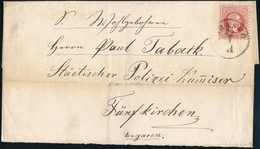 S. Wohlgebohren
Herrn Paul Taback
Städtischer Polizei Kǔmiser
Fünfkirchen
Ungaren.